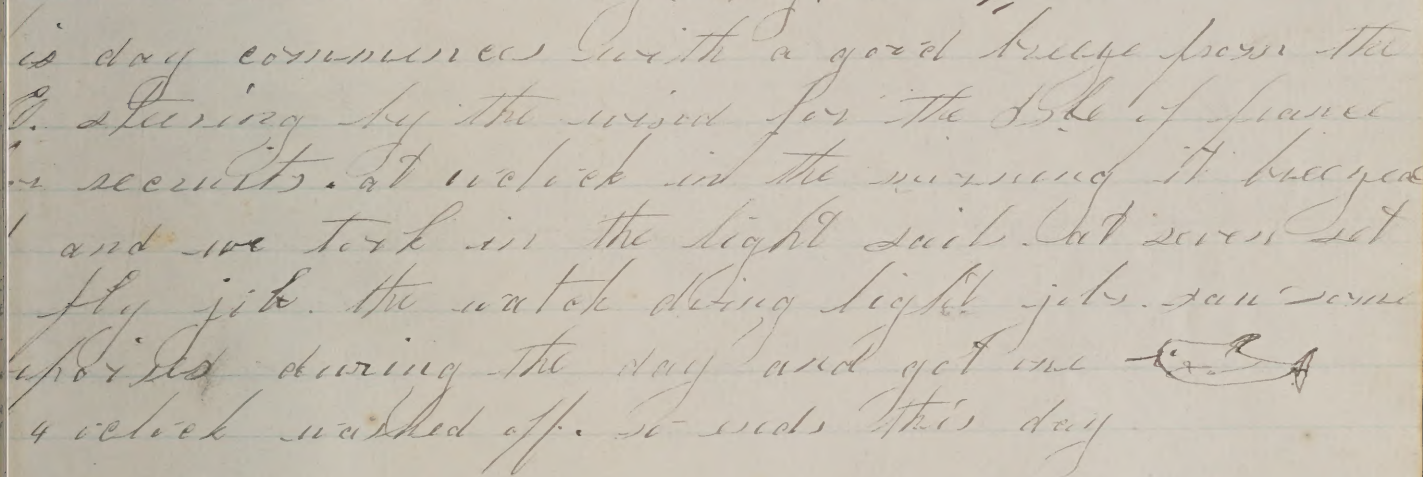 is day commences with a good breeze from the
E. stearing by the wind for the Isle of france
or recruits. at oclock in the morning it breezed
and we took in the light sails. at seven set
fly jib. the watch doing light jobs. saw some
porises during the day and got one
4 oclock washed off. so ends this day